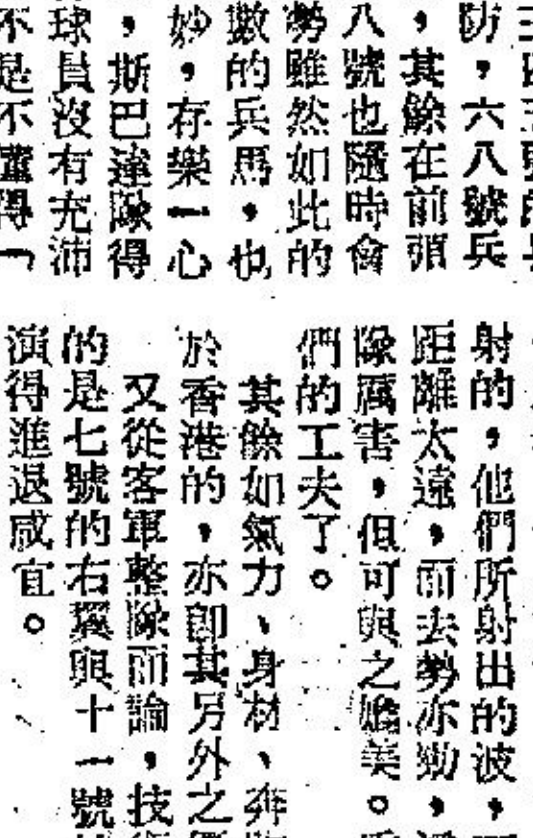 防，六八號兵
，其餘在前頭
八號也隨時會
勢雖然如此的
數的兵馬，也
妙，存樂一心
，斯巴達隊得
球員沒有充沛
不是不懂得「
射的，他們所射出的波，
距離太遠，而去勢亦勁，
隊厲害，但可與之媲美。
們的工夫了。
其餘如氣力、身材、奔
於香港的，亦即其另外之
又從客軍整隊而論，技
的是七號的右翼與十一號
演得進退咸宜。